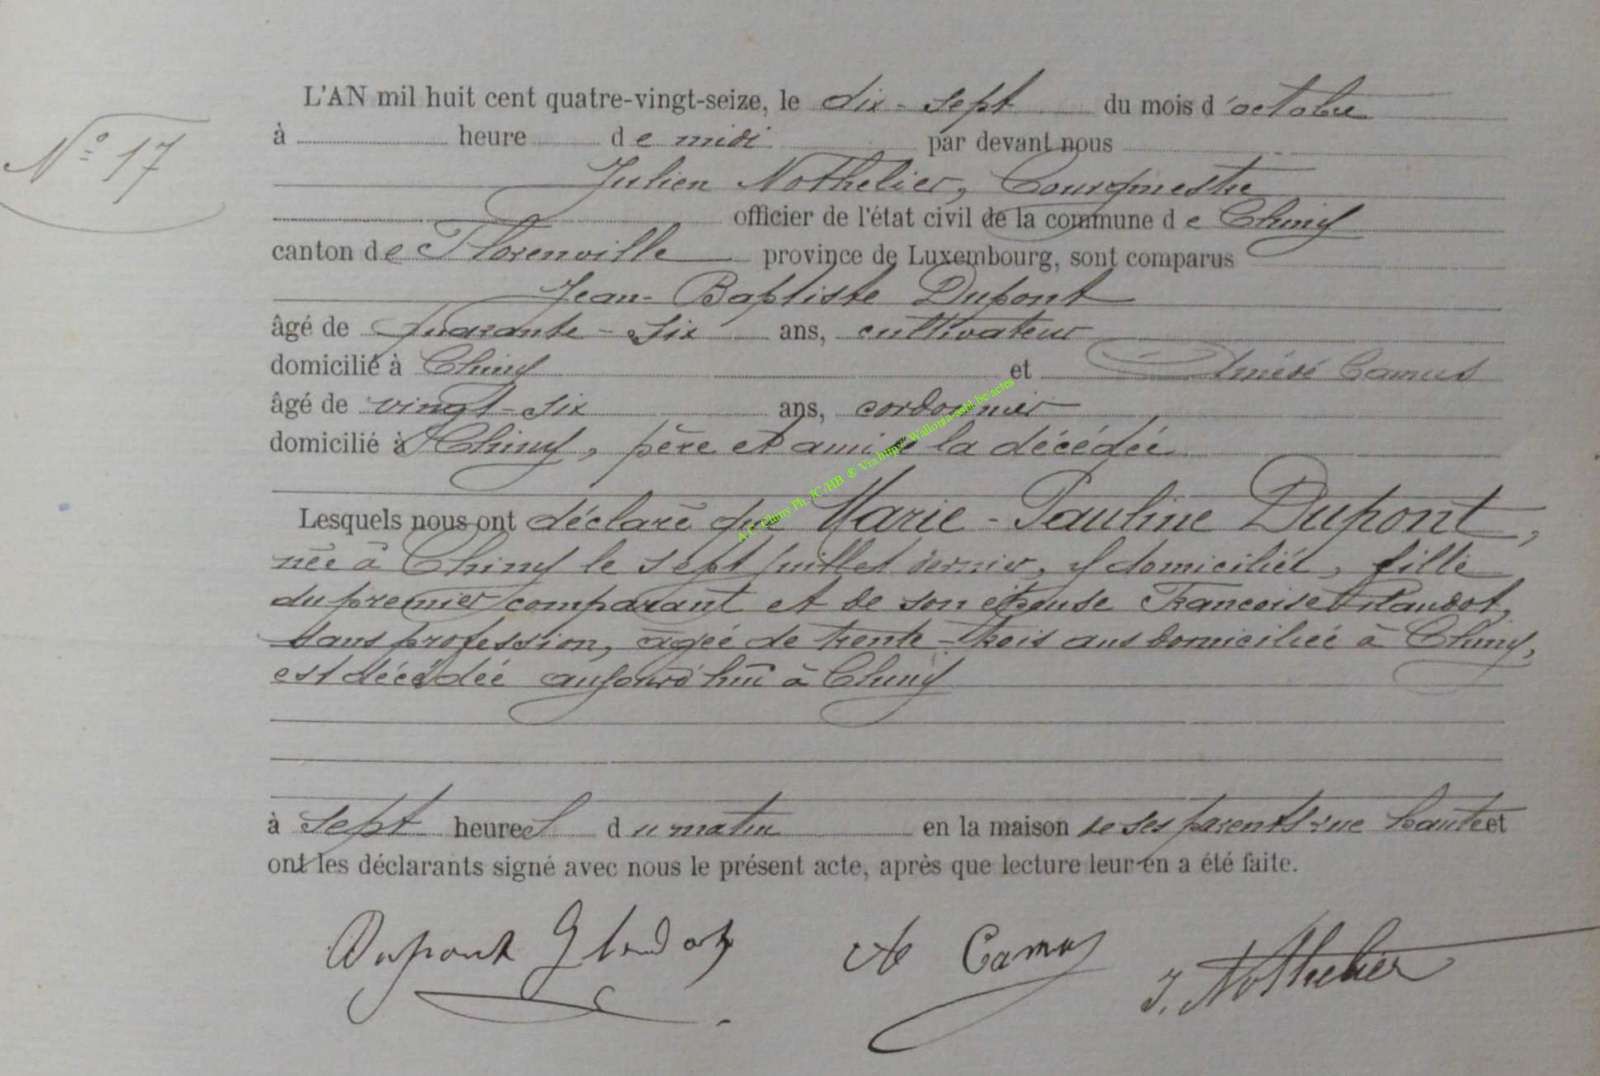 N° 17
L'AN mil huit cent quatre-vingt-seize, le dix-sept du mois d'octobre
à heure de midi par devant nous
Julien Nothelier, Bourgmestre
officier de l'état civil de la commune de Chiny
canton de Florenville province de Luxembourg, sont comparus
Jean-Baptiste Dupont
âgé de quarante-six ans, cultivateur
domicilié à Chiny et Aimésé Camus
âgé de vingt-six ans, cordonnier
domicilié à Chiny, père et ami de la décédée
Lesquels nous ont déclaré que Marie-Pauline Dupont,
née à Chiny le sept juillet dernier, y domiciliée, fille
du premier comparant et de son épouse Françoise
sans profession, agée de trente-trois ans domiciliée à Chiny,
est décédée aujourd'hui à Chiny
à sept heures du matin en la maison de ses parents rue haute et
ont les déclarants signé avec nous le présent acte, après que lecture leur en a été faite.
Dupont A Camus J. Nothelier